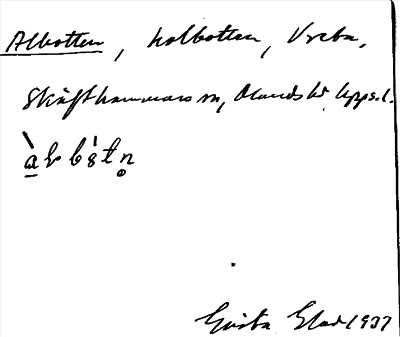 Albotten, kolbotten, Vreta,
Skäfthammars sn, Olands hd Uppsl.
Gösta Glad 1937